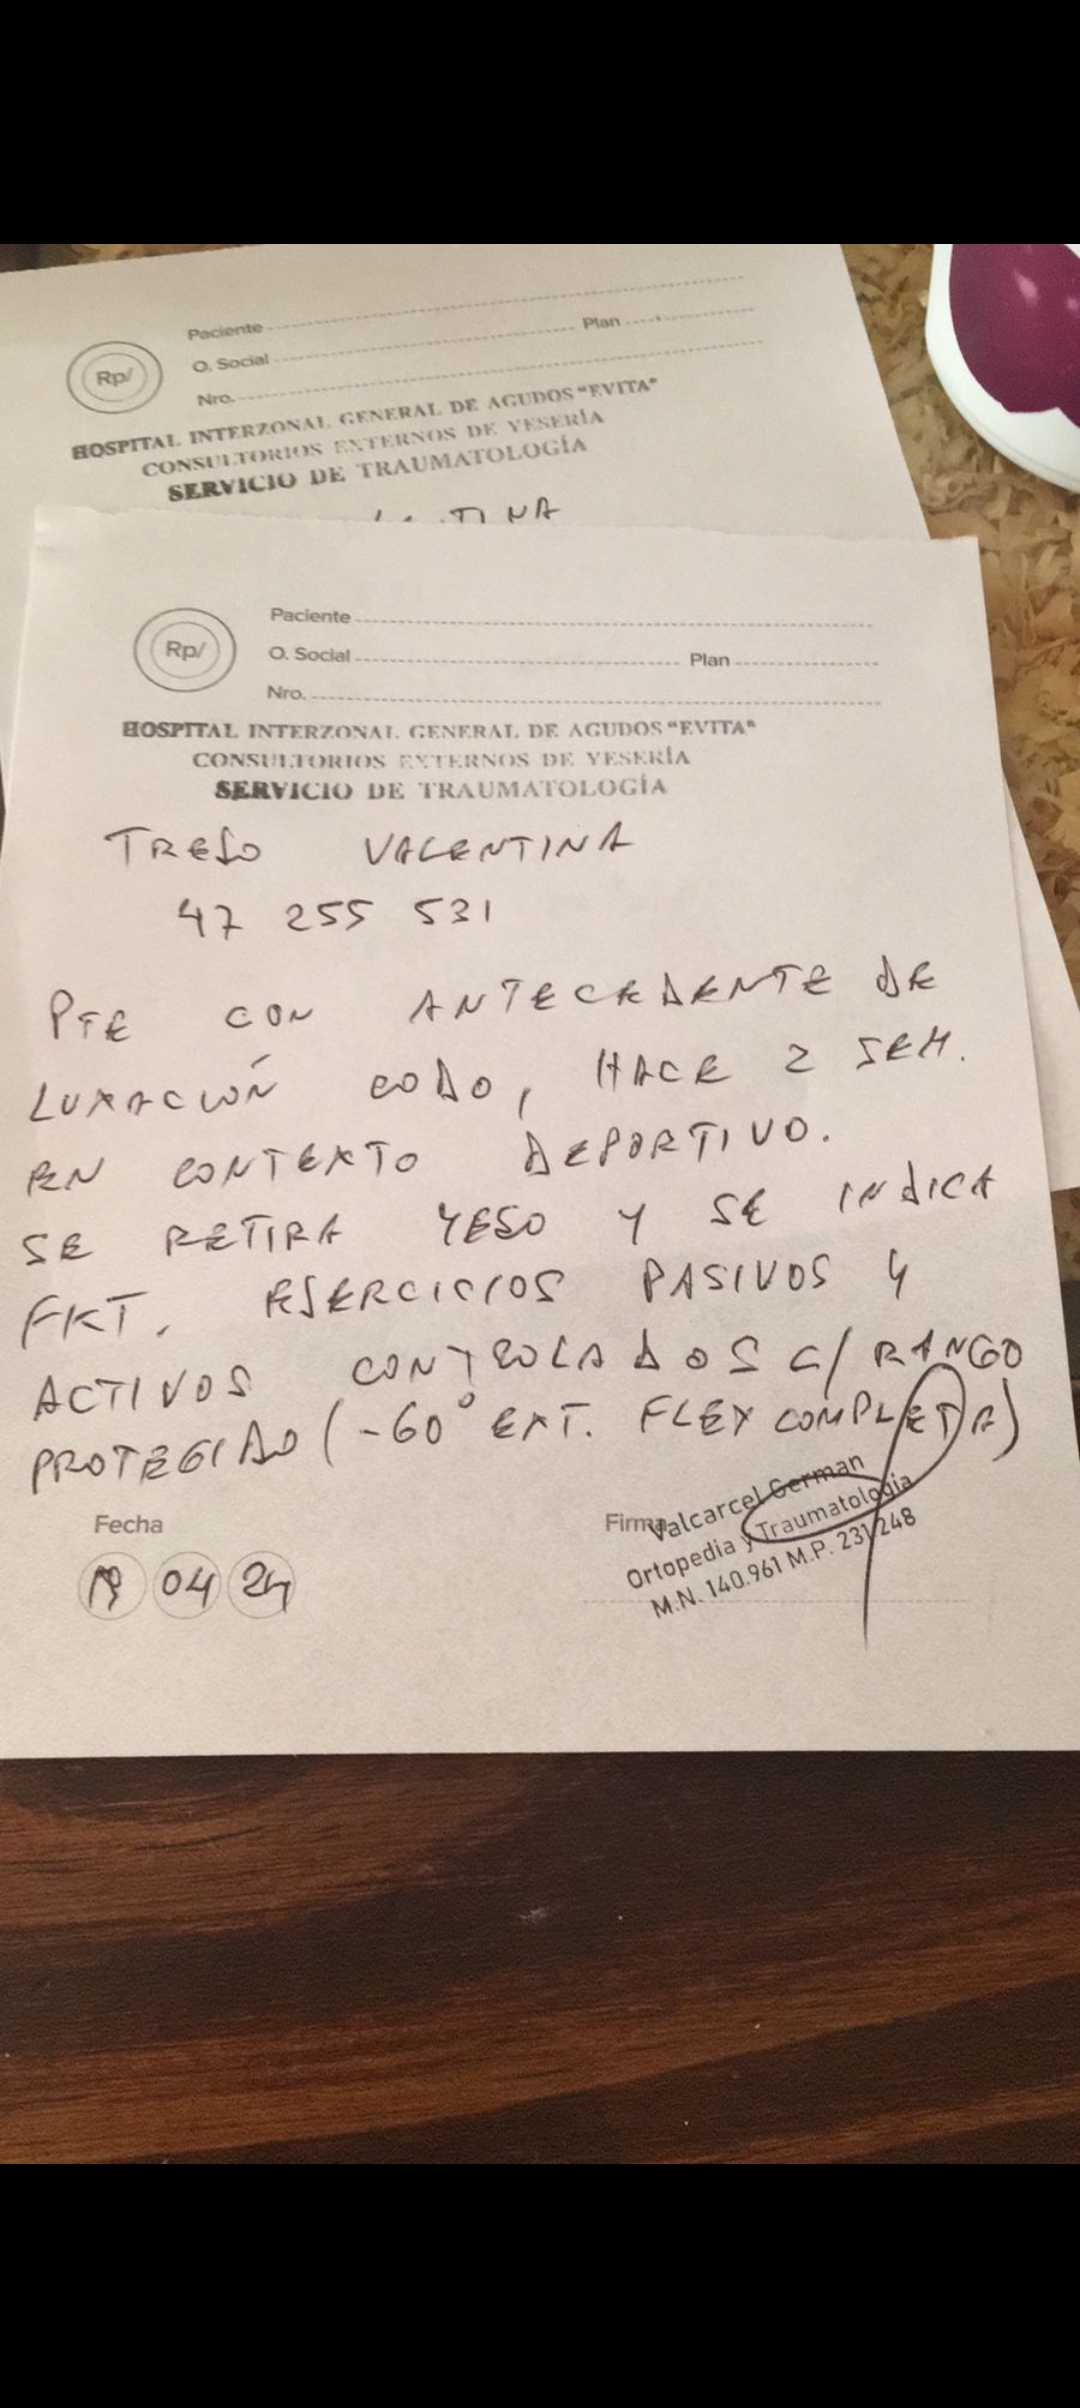 Rp/
Paciente
O. Social Plan
Nro.
HOSPITAL INTERZONAL GENERAL DE AGUDOS "EVITA"
CONSULTORIOS EXTERNOS DE YESERÍA
SERVICIO DE TRAUMATOLOGÍA
Rp/
Paciente
O. Social Plan
Nro.
HOSPITAL INTERZONAL GENERAL DE AGUDOS "EVITA"
CONSULTORIOS EXTERNOS DE YESERÍA
SERVICIO DE TRAUMATOLOGÍA
VALENTINA
47 255 531
PTE CON ANTECEDENTE DE
LUXACIÓN CODO, HACE 2 SEM.
EN CONTEXTO DEPORTIVO.
SE RETIRA YESO Y SE INDICA
FKT. EJERCICIOS PASIVOS Y
ACTIVOS CONTROLADOS C/ RANGO
PROTEGIDO (-60° EXT. FLEX COMPLETA)
Fecha
04 24
Firma
Valcarcel German
Ortopedia y Traumatologia
M.N. 140.961 M.P. 231248